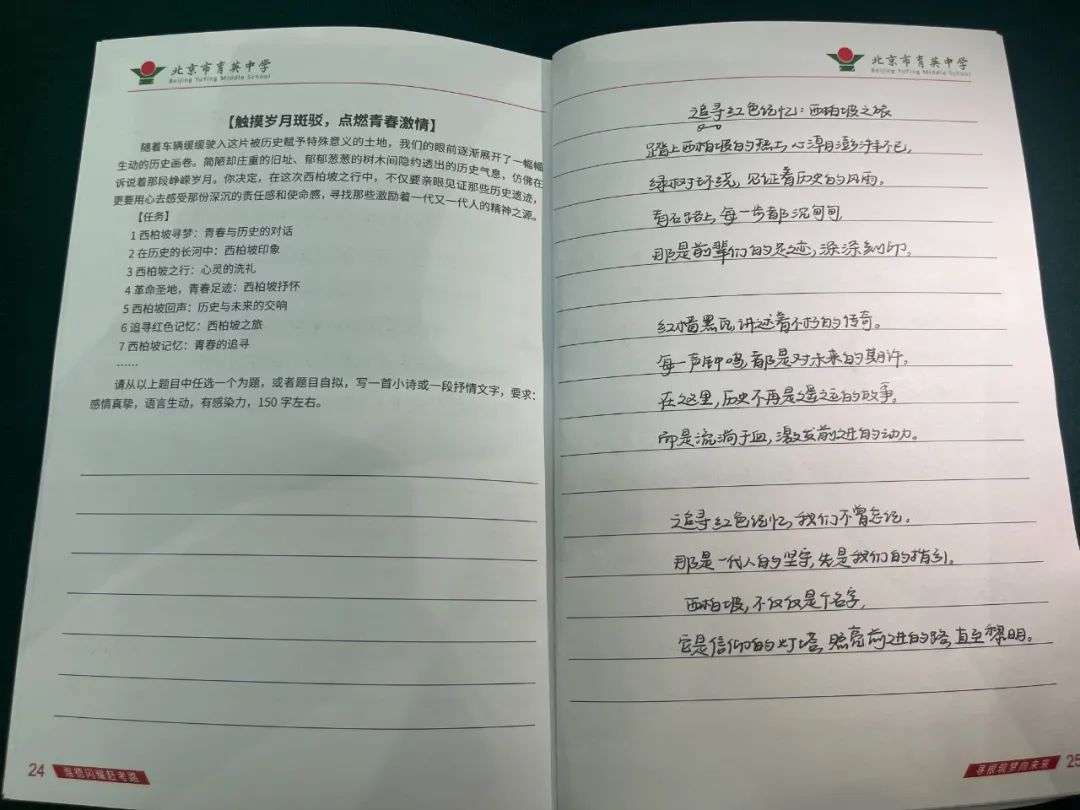 北京市育英中学
Beijing YuYing Middle School
【触摸岁月斑驳，点燃青春激情】
随着车辆缓缓驶入这片被历史赋予特殊意义的土地，我们的眼前逐渐展开了一幅幅
生动的历史画卷。简陋却庄重的旧址、郁郁葱葱的树木间隐约透出的历史气息，仿佛在
诉说着那段峥嵘岁月。你决定，在这次西柏坡之行中，不仅要亲眼见证那些历史遗迹，
更要用心去感受那份深沉的责任感和使命感，寻找那些激励着一代又一代人的精神之源。
【任务】
1 西柏坡寻梦：青春与历史的对话
2 在历史的长河中：西柏坡印象
3 西柏坡之行：心灵的洗礼
4 革命圣地，青春足迹：西柏坡抒怀
5 西柏坡回声：历史与未来的交响
6 追寻红色记忆：西柏坡之旅
7 西柏坡记忆：青春的追寻
……
请从以上题目中任选一个为题，或者题目自拟，写一首小诗或一段抒情文字，要求：
感情真挚，语言生动，有感染力，150 字左右。
24
北京市育英中学
Beijing YuYing Middle School
追寻红色记忆：西柏坡之旅
踏上西柏坡的热土，心潮澎湃不已，
绿树环绕，见证着历史的风雨。
青石路上，每一步都沉甸甸，
那是前辈们的足迹，深深刻印。
红墙黑瓦，讲述着不朽的传奇。
每一声钟鸣，都是对未来的期许，
在这里，历史不再是遥远的故事。
而是流淌于血，激发前进的动力。
追寻红色记忆，我们不曾忘记。
那是一代人的坚守，先是我们的指引。
西柏坡，不仅仅是个名字，
它是信仰的灯塔，照亮前进的路，直至黎明。
寻根筑梦向未来
25